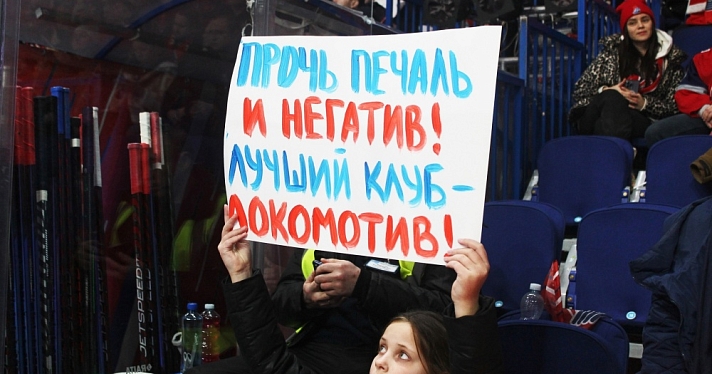 ПРОЧЬ ПЕЧАЛЬ
И НЕГАТИВ!
ЛУЧШИЙ КЛУБ -
ЛОКОМОТИВ!
JETSPEED